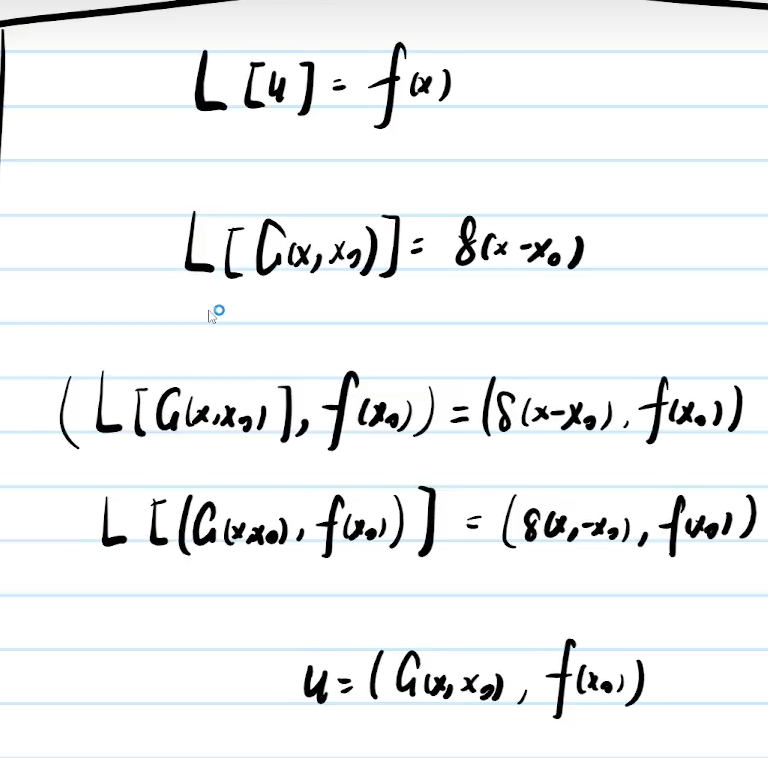 L[u] = f(x)
L[G(x, x₀)] = δ(x - x₀)
(L[G(x, x₀)], f(x₀)) = (δ(x - x₀), f(x₀))
L[(G(x, x₀), f(x₀))] = (δ(x, - x₀), f(x₀))
u = (G(x, x₀), f(x₀))